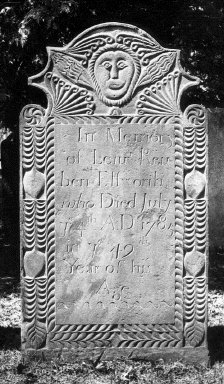 In Memory
of Leiut Reu
ben Ellsworth
who Died July
A D 178
49
Year of his
Age